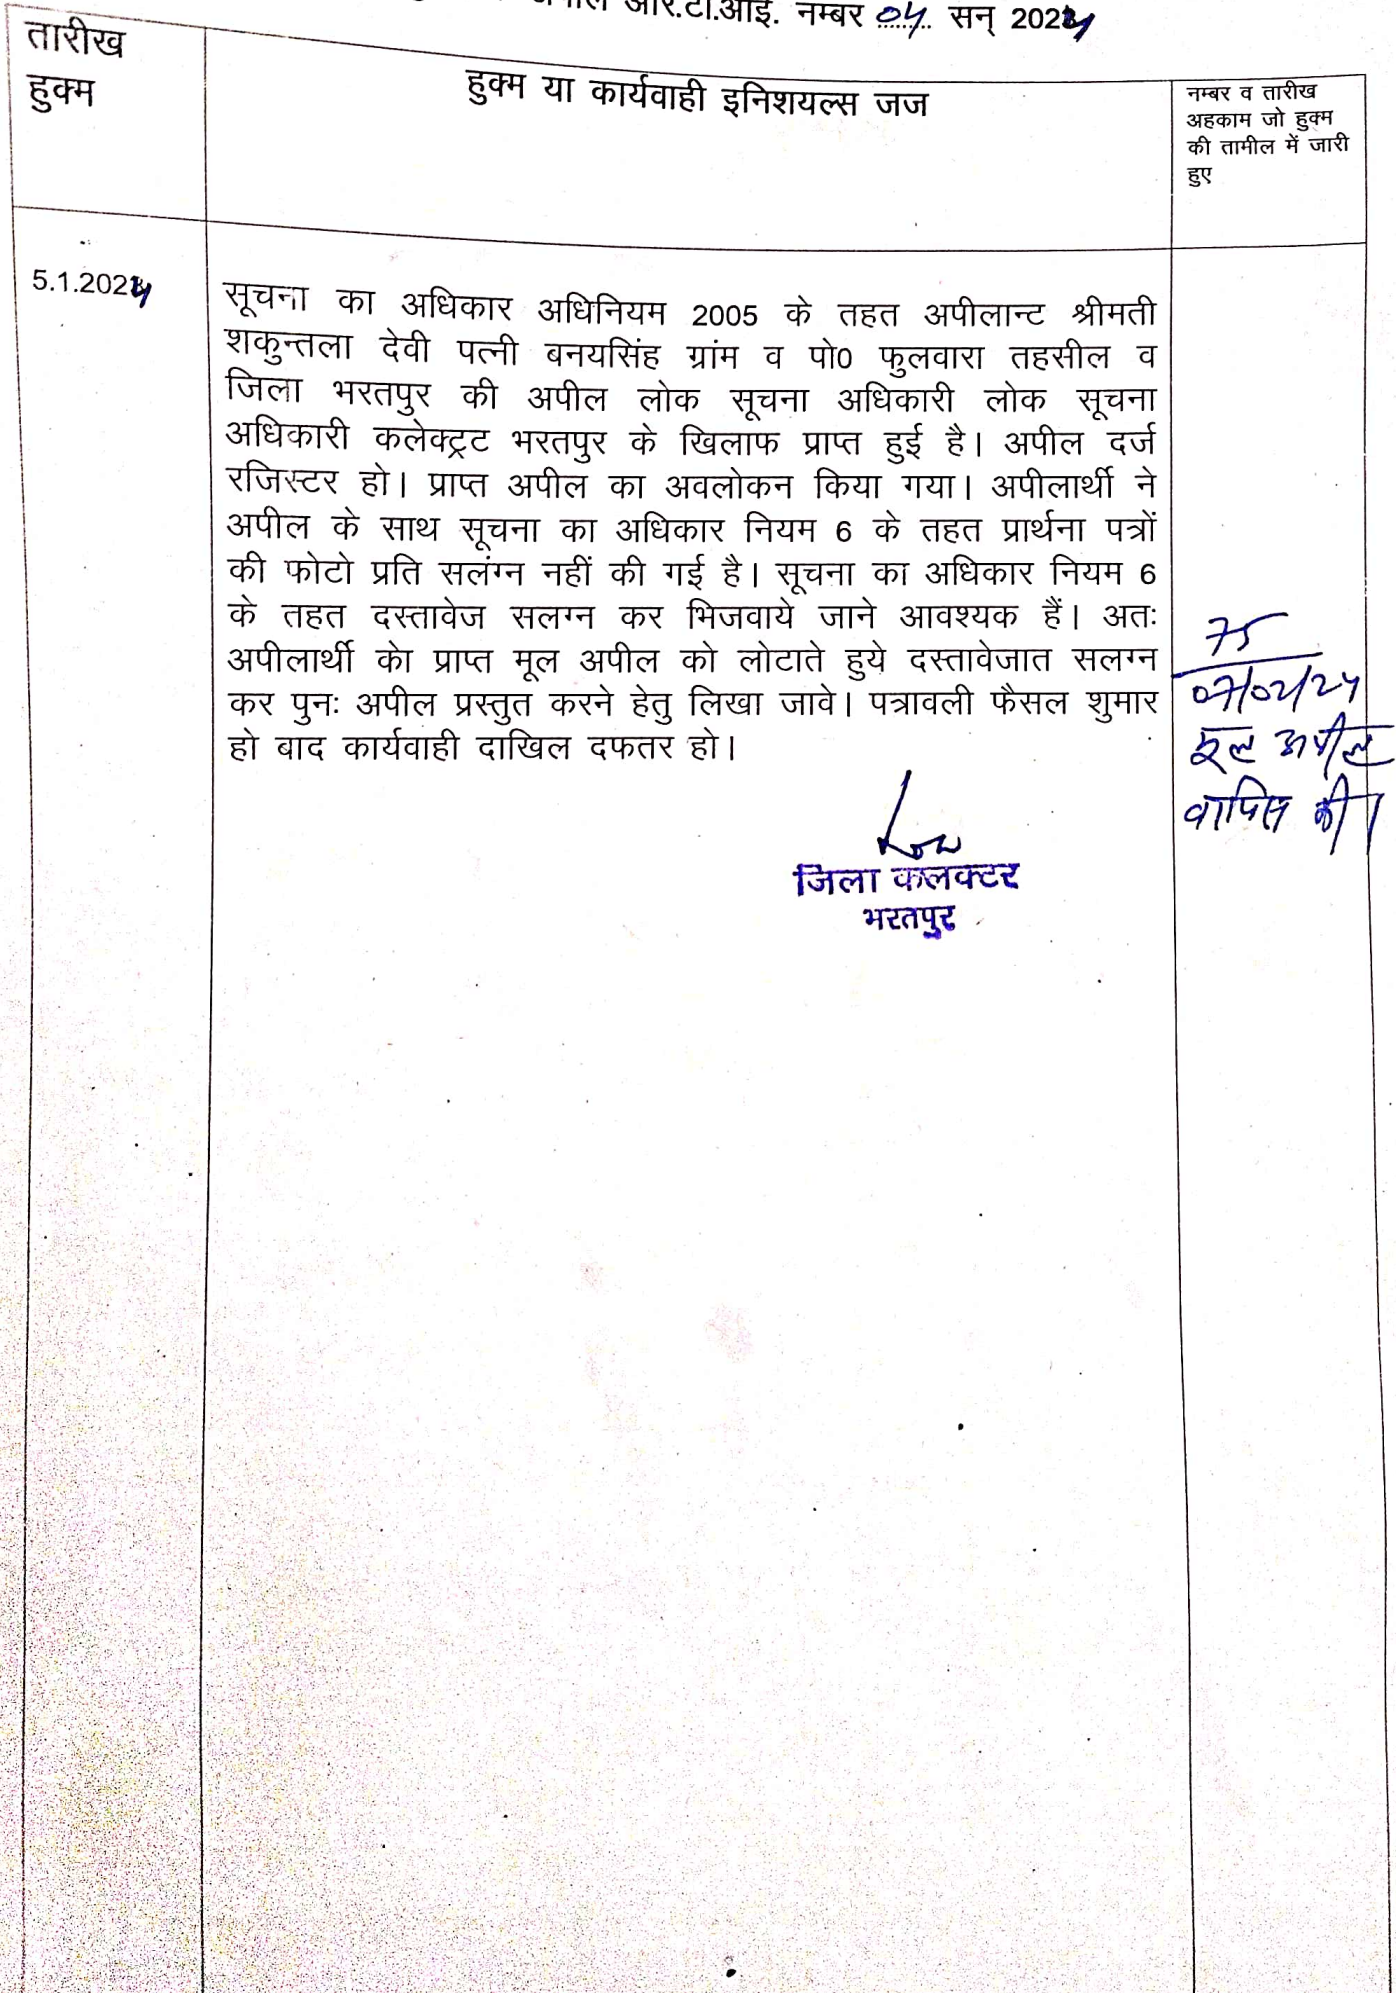 अपील आर.टी.आई. नम्बर 04 सन् 2024
तारीख
हुक्म
हुक्म या कार्यवाही इनिशयल्स जज
नम्बर व तारीख
अहकाम जो हुक्म
की तामील में जारी
हुए
5.1.2024
सूचना का अधिकार अधिनियम 2005 के तहत अपीलान्ट श्रीमती
शकुन्तला देवी पत्नी बनयसिंह ग्रांम व पो0 फुलवारा तहसील व
जिला भरतपुर की अपील लोक सूचना अधिकारी लोक सूचना
अधिकारी कलेक्ट्रट भरतपुर के खिलाफ प्राप्त हुई है। अपील दर्ज
रजिस्टर हो। प्राप्त अपील का अवलोकन किया गया। अपीलार्थी ने
अपील के साथ सूचना का अधिकार नियम 6 के तहत प्रार्थना पत्रों
की फोटो प्रति सलंग्न नहीं की गई है। सूचना का अधिकार नियम 6
के तहत दस्तावेज सलग्न कर भिजवाये जाने आवश्यक हैं। अतः
अपीलार्थी केा प्राप्त मूल अपील को लोटाते हुये दस्तावेजात सलग्न
कर पुनः अपील प्रस्तुत करने हेतु लिखा जावे। पत्रावली फैसल शुमार
हो बाद कार्यवाही दाखिल दफतर हो।
75
07/02/24
मूल अपील
वापिस की।
जिला कलक्टर
भरतपुर